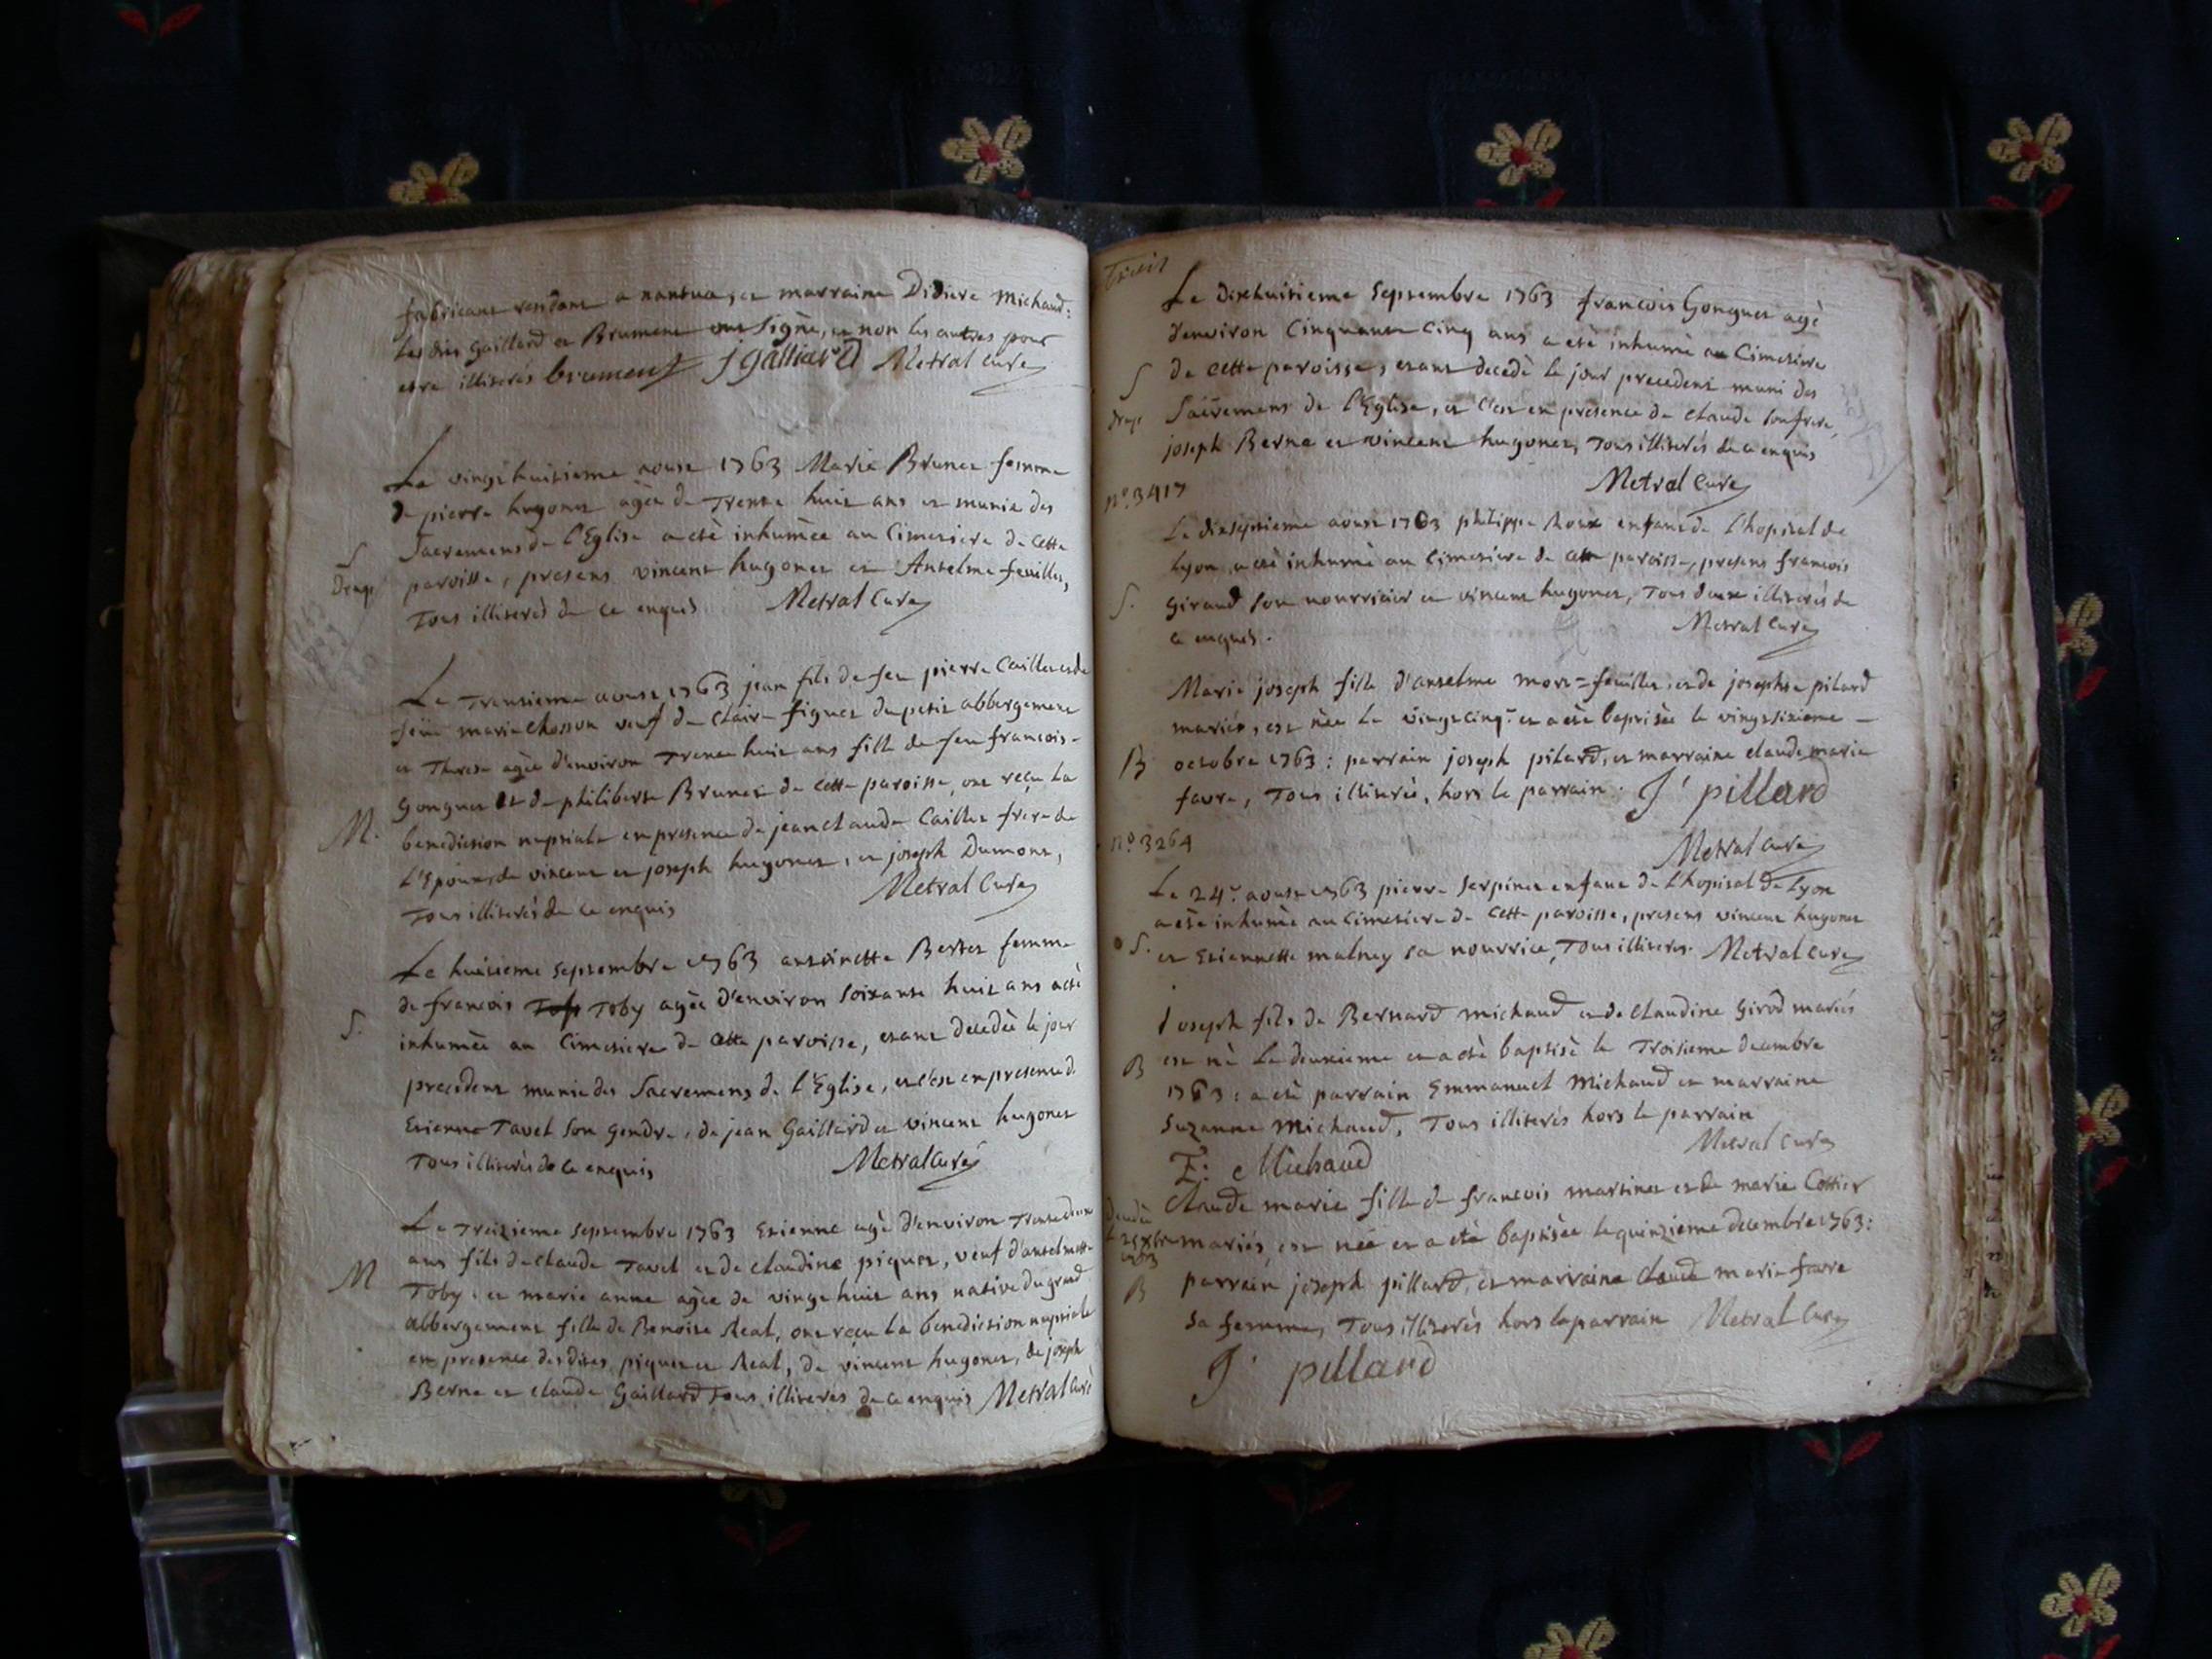 fabricant residant a nantua, et marraine Didiere Michaud:
Les dits Gaillard et Brument ont signé, et non les autres pour
estre illiterés brument j galliard Metral curé
Le vingt huitieme aoust 1763 Marie Brunet femme
de pierre hugonet agée de Trente huit ans et munie des
Sacremens de l'Eglise a eté inhumée au Cimetiere de cette
S
Drap.
paroisse, presens vincent hugonet et Anselme feuillet,
Tous illiterés de ce enquis Metral Curé
Le Trentieme aoust 1763 jean fils de feu pierre Caillet et de
feüe marie chosson veuf de Claire figuet du petit abbergement
et Therese agée d'environ Trente huit ans fille de feu francois
Gonguet et de philiberte Brunet de cette paroisse, ont reçu la
M.
benediction nuptiale en presence de jean claude Caillet frere de
l'Epoux, de vincent et joseph hugonet, et joseph Dumont,
Tous illiterés de ce enquis Metral Curé
Le huitieme septembre 1763 antoinette Bertet femme
de francois Toby agée d'environ soixante huit ans a eté
S.
inhumée au Cimetiere de cette paroisse, etant decedée le jour
precedent munie des Sacremens de l'Eglise, et c'est en presence de
Etienne Tavel son gendre, de jean Gaillard et vincent hugonet
Tous illiterés de ce enquis Metral Curé
Le Treizieme septembre 1763 Etienne agé d'environ Trente deux
ans fils de claude Tavel et de claudine piquet, veuf d'anselmette
M
Toby, et marie anne agée de vingt huit ans native du grand
abbergement fille de Benoite Real, ont reçu la benediction nuptiale
en presence desdites piquet et Real, de vincent hugonet, de joseph
Berne et claude Gaillard Tous illiterés de ce enquis Metral curé
Le dixhuitieme septembre 1763 francois Gonguet agé
d'environ Cinquante cinq ans a eté inhumé au Cimetiere
S
de cette paroisse, etant decedé le jour precedent muni des
drap.
Sacremens de l'Eglise, et c'est en presence de claude son frere,
joseph Berne et vincent hugonet, Tous illiterés de ce enquis
Metral Curé
n° 3417
Le dixseptieme aoust 1763 philippe Roux enfant de l'hopital de
Lyon a eté inhumé au Cimetiere de cette paroisse, presens francois
S.
Giraud son nourricier et vincent hugonet, Tous deux illiterés de
ce enquis. Metral Curé
Marie joseph fille d'anselme mort=feuillet, et de josephte pilard
mariés, est née le vingt cinq.e et a eté baptisée le vingtsixieme
B
octobre 1763: parrain joseph pilard, et marraine claude marie
favre, Tous illiterés, hors le parrain. J pillard
Metral Curé
n° 3264
Le 24.e aoust 1763 pierre serpinet enfant de l'hopital de Lyon
a eté inhumé au Cimetiere de cette paroisse, presens vincent hugonet
S.
et Etiennette malney sa nourrice, Tous illiterés. Metral Curé
Joseph fils de Bernard michaud et de claudine Girod mariés
B
est né le deuxieme et a eté baptisé le Troisieme decembre
1763: a eté parrain Emmanuel Michaud et marraine
Suzanne Michaud, Tous illiterés hors le parrain
Metral Curé
E: Michaud
Claude marie fille de francois martinet et de marie Cottier
mariés, est née et a eté baptisée le quinzieme decembre 1763:
B
parrain joseph pillard, et marraine claude marie favre
sa femme, Tous illiterés hors le parrain Metral Curé
J pillard